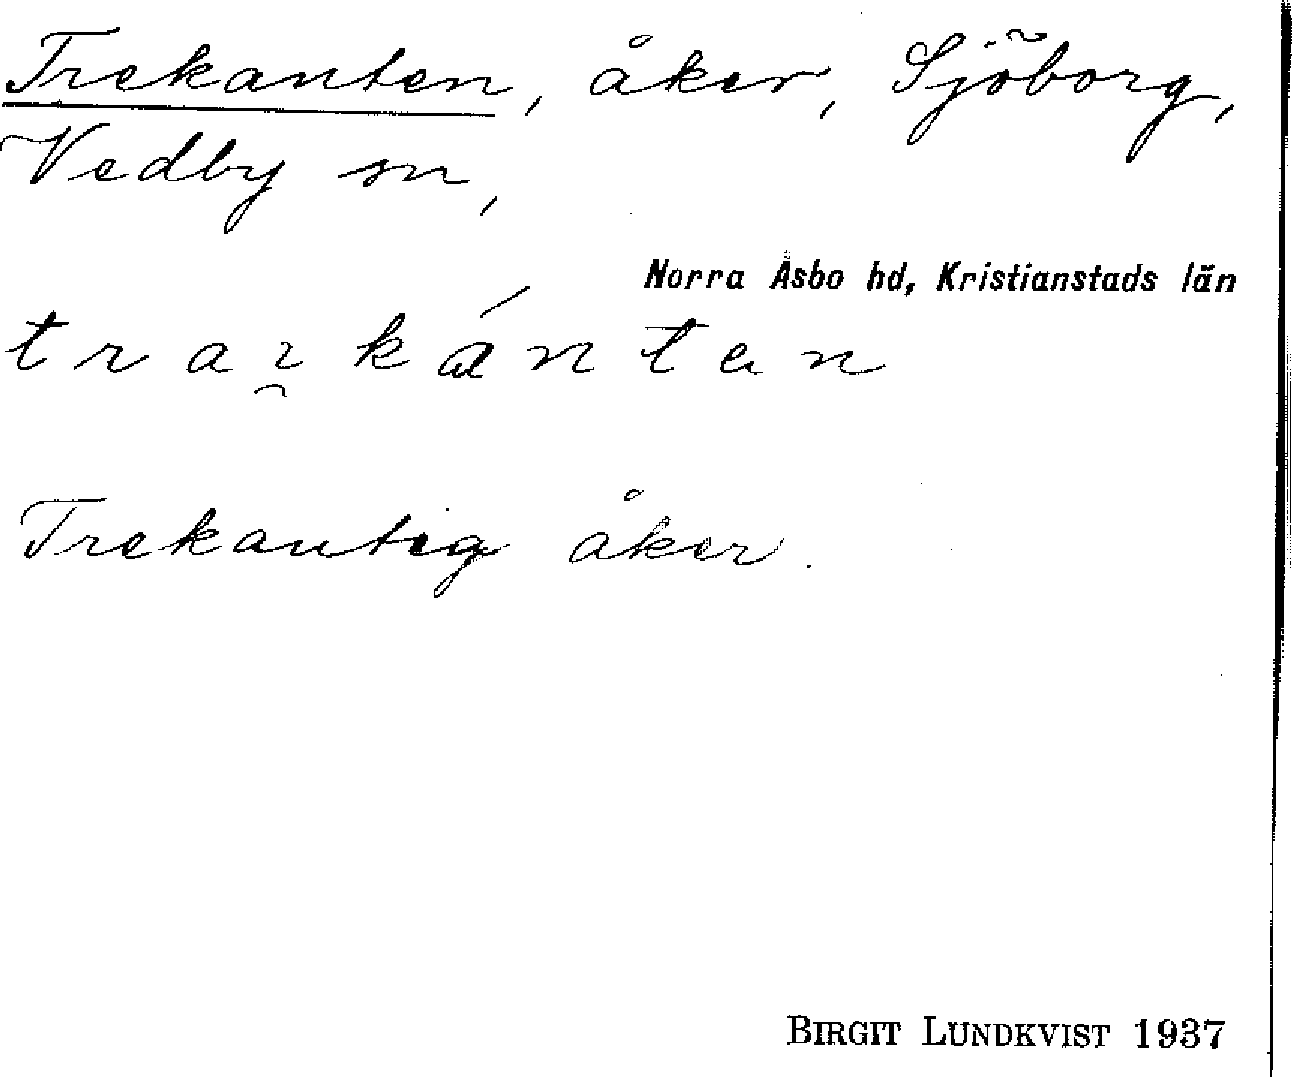 Trekanten, åker, Sjöborg,
Vedby sn,
Norra Åsbo hd, Kristianstads län
t r a ɪ̯ k á n t ə n
Trekantig åker.
BIRGIT LUNDKVIST 1937